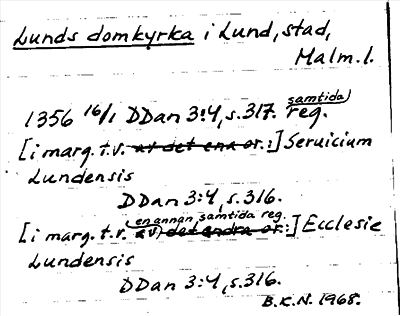 Lunds domkyrka i Lund, stad,
Malm. l.
1356 16/1 DDan 3:4, s. 317. samtida) reg.
[i marg. t.v. av det ena or.:] Seruicium
Lundensis
DDan 3:4, s. 316.
[i marg. t.v. av (en annan samtida reg. det andra or.:] Ecclesie
Lundensis
DDan 3:4, s. 316.
B.K.N. 1968.